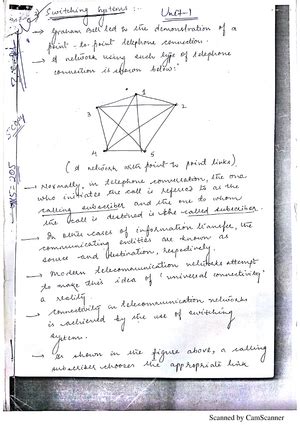 Switching Systems:- Unit-1
→ Graham Bell led to the demonstration of a
point-to-point telephone connection.
→ A network using such type of telephone
connection is shown below:-
1
2
3
4
5
(A network with point to point links)
→ Normally, in telephone conversation, the one
who initiates the call is referred to as the
calling subscriber and the one to whom
the call is destined is the called subscriber.
→ In other cases of information transfer, the
communicating entities are known as
source and destination, respectively.
→ Modern telecommunication networks attempt
to make this idea of 'universal connectivity'
a reality.
→ Connectivity in telecommunication networks
is achieved by the use of switching
system.
→ As shown in the figure above, a calling
subscriber chooses the appropriate link
Scanned by CamScanner